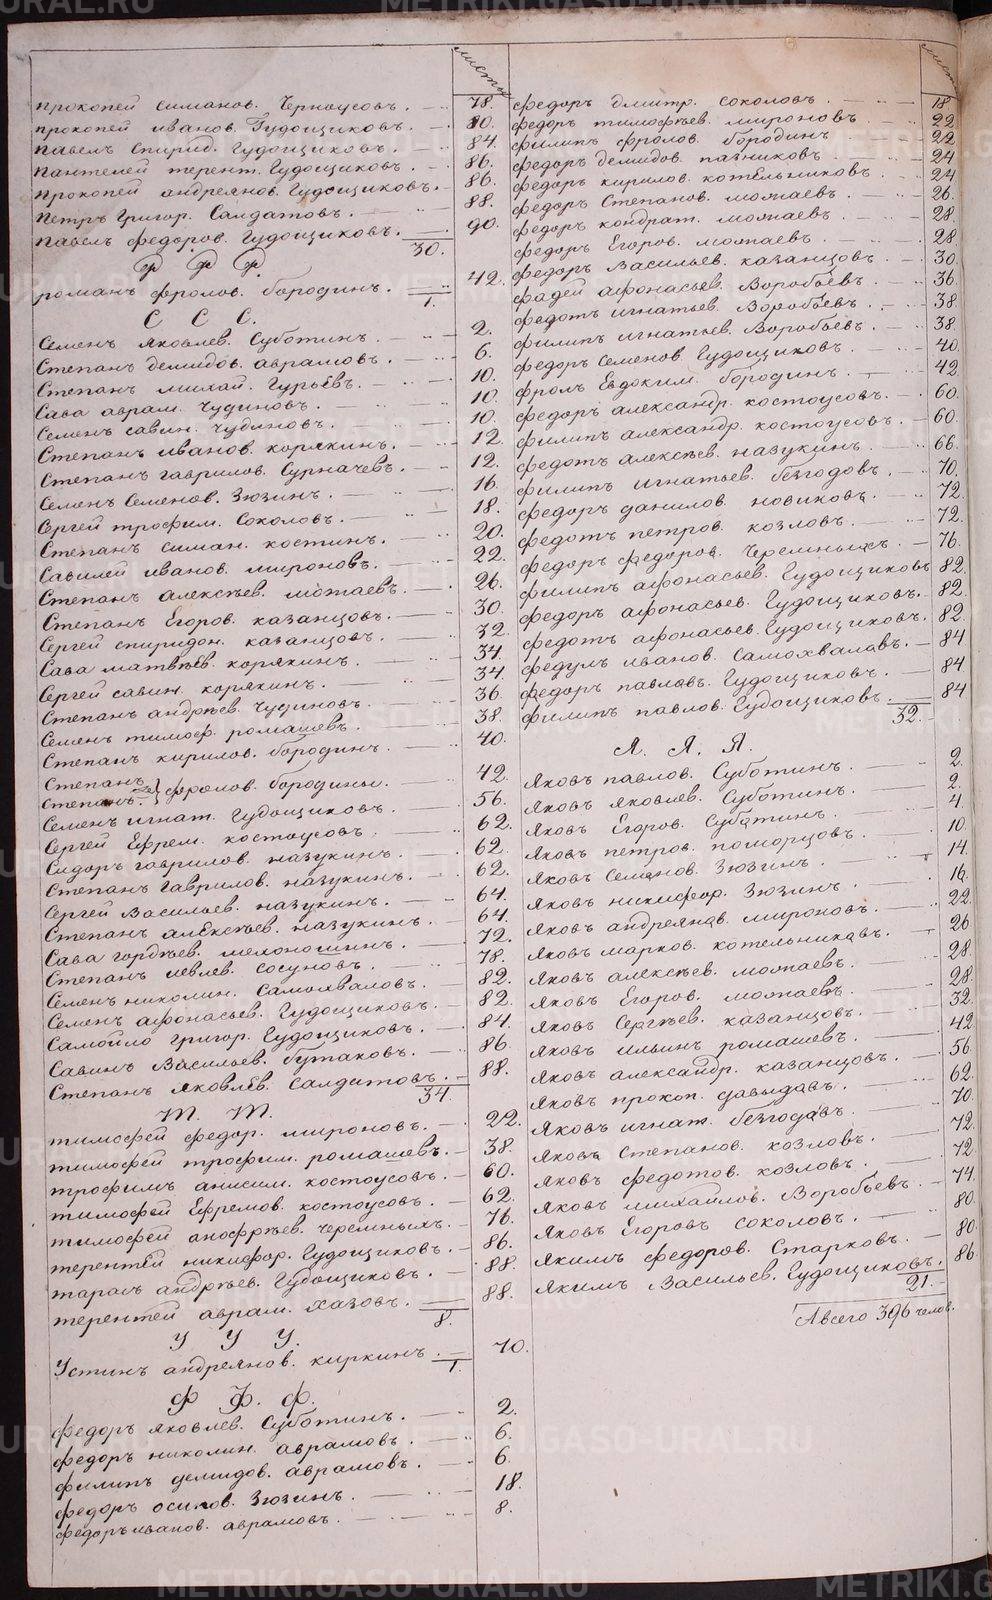 листы
Прокопей симанов. Черноусовъ. 78.
прокопей иванов. Гудощиковъ. 80.
павелъ спирид. Гудощиковъ. 84.
пантелей терент. Гудощиковъ. 86.
прокопей андреянов. Гудощиковъ. 86.
петръ григор. Салдатовъ. 88.
павелъ федоров. Гудощиковъ. 90.
30.
Р Р Р.
романъ фролов. бородинъ. 42.
1.
С С С.
Семенъ яковлев. Суботинъ. 2.
Степанъ демидов. аврамовъ. 6.
Степанъ михай. Гурьевъ. 10.
Сава аврам. Чудиновъ. 10.
Семенъ савин. Чудиновъ. 10.
Степанъ иванов. корякинъ. 12.
Степанъ гаврилов. Сурначевъ. 12.
Семенъ Семенов. Зюзинъ. 16.
Сергей трофим. Соколовъ. 18.
Степанъ симан. костинъ. 20.
Савилей иванов. мироновъ. 22.
Степанъ алексѣев. мотаевъ. 26.
Степанъ Егоров. казанцовъ. 30.
Сергей спиридон. казанцовъ. 32.
Сава матвѣев. корякинъ. 34.
Сергей савин. корякинъ. 34.
Степанъ андрѣев. Чудиновъ. 36.
Семенъ тимоф. ромашевъ. 38.
Степанъ кирилов. бородинъ. 40.
Степанъ
Степанъ. фролов. бородины. 42.
Семенъ игнат. Гудощиковъ. 56.
Сергей Ефрем. костоусовъ. 62.
Сидоръ гаврилов. назукинъ. 62.
Степанъ гаврилов. назукинъ. 62.
Сергей Васильев. назукинъ. 64.
Степанъ алексѣев. назукинъ. 64.
Сава гордѣев. мелоношинъ. 72.
Степанъ иевлев. сосуновъ. 78.
Семенъ николин. Самохваловъ. 82.
Семенъ афонасьев. Гудощиковъ. 82.
Самойло григор. Гудощиковъ. 84.
Савинъ Васильев. бутаковъ. 86.
Степанъ яковлев. Салдатовъ. 88.
34.
Т. Т.
тимофей федор. мироновъ. 22.
тимофей трофим. ромашевъ. 38.
трофимъ анисим. костоусовъ. 60.
тимофей Ефремов. костоусовъ. 62.
тимофей анофрѣев. черемныхъ. 76.
терентей никифор. Гудощиковъ. 86.
тарасъ андрѣев. Гудощиковъ. 88.
терентей аврам. хазовъ. 88.
8.
У У У.
Устинъ андреянов. киркинъ. 70.
1.
Ф Ф. Ф.
федоръ яковлев. Суботинъ. 2.
федоръ николин. аврамовъ. 6.
филипъ демидов. аврамовъ. 6.
федоръ осипов. Зюзинъ. 18.
федоръ иванов. аврамовъ. 8.
листы
федоръ дмитр. соколовъ. 18
федоръ тимофѣев. мироновъ 22
филипъ фролов. бородинъ 22
федоръ демидов. пазниковъ 24
федоръ кирилов. котельниковъ. 24
федоръ Степанов. мотаевъ. 26.
федоръ кондрат. мотаевъ. 28.
федоръ Егоров. мотаевъ. 28
федоръ Васильев. казанцовъ. 30.
фадей афонасьев. Воробьевъ. 36.
федотъ игнатьев. Воробьевъ. 38.
филипъ игнатьев. Воробьевъ. 38
федоръ Семенов. Гудощиковъ. 40.
фролъ Евдоким. бородинъ. 42
федоръ александр. костоусовъ. 60.
филипъ александр. костоусовъ. 60.
федотъ алексѣев. назукинъ. 66.
филипъ игнатьев. безгодовъ. 70.
федоръ данилов. новиковъ. 72.
федотъ петров. козловъ. 72.
федоръ федоров. Черемныхъ. 76.
филипъ афонасьев. Гудощиковъ 82.
федоръ афонасьев. Гудощиковъ. 82.
федотъ афонасьев. Гудощиковъ. 82.
федулъ иванов. Самохваловъ. 84
федоръ павлов. Гудощиковъ. 84
филипъ павлов. Гудощиковъ. 84
32.
Я. Я. Я.
Яковъ павлов. Суботинъ. 2.
Яковъ яковлев. Суботинъ. 2.
Яковъ Егоров. Суботинъ. 4.
Яковъ петров. поморцовъ. 10.
Яковъ Семенов. Зюзинъ. 14.
Яковъ никифор. Зюзинъ. 16.
Яковъ андреянов. мироновъ. 22.
Яковъ марков. котельниковъ. 26.
Яковъ алексѣев. мотаевъ. 28.
Яковъ Егоров. мотаевъ. 28.
Яковъ Сергѣев. казанцовъ. 32.
Яковъ ильинъ ромашевъ. 42.
Яковъ александр. казанцовъ. 56
Яковъ прокоп. давыдовъ. 62.
Яковъ игнат. безгодовъ. 70.
Яковъ Степанов. козловъ. 72.
Яковъ федотов. козловъ. 72
Яковъ михайлов. Воробьевъ. 74.
Яковъ Егоровъ соколовъ. 80.
Якимъ федоров. Старковъ. 80.
Якимъ Васильев. Гудощиковъ. 86.
21.
А всего 396 челов.
METRIKI.GASO-URAL.RU